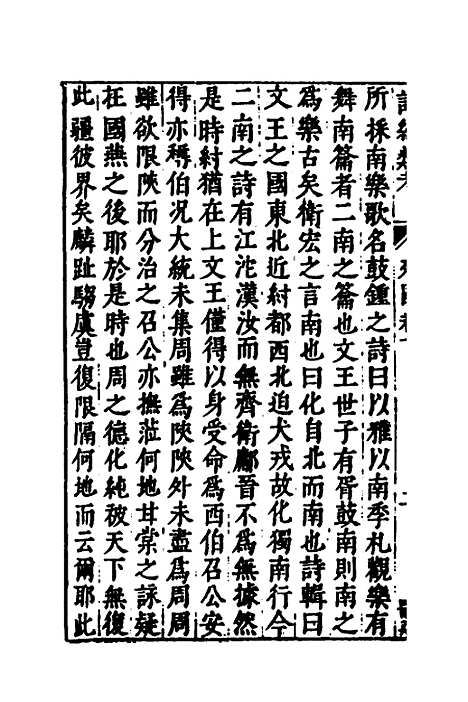 所採南樂歌名鼓鍾之詩曰以雅以南季札觀樂有
舞南籥者二南之籥也文王世子有胥鼓南則南之
爲樂古矣衛宏之言南也曰化自北而南也詩輯曰
文王之國東北近紂都西北迫犬戎故化獨南行今
二南之詩有江沱漢汝而無齊衛鄘晉不爲無據然
是時紂猶在上文王僅得以身受命爲西伯召公安
得亦稱伯况大統未集周雖爲陝陝外未盡爲周周
雖欲限陝而分治之召公亦撫蒞何地甘棠之詠疑
在國燕之後耶於是時也周之德化純被天下無復
此疆彼界矣麟趾騶虞豈復限隔何地而云爾耶此